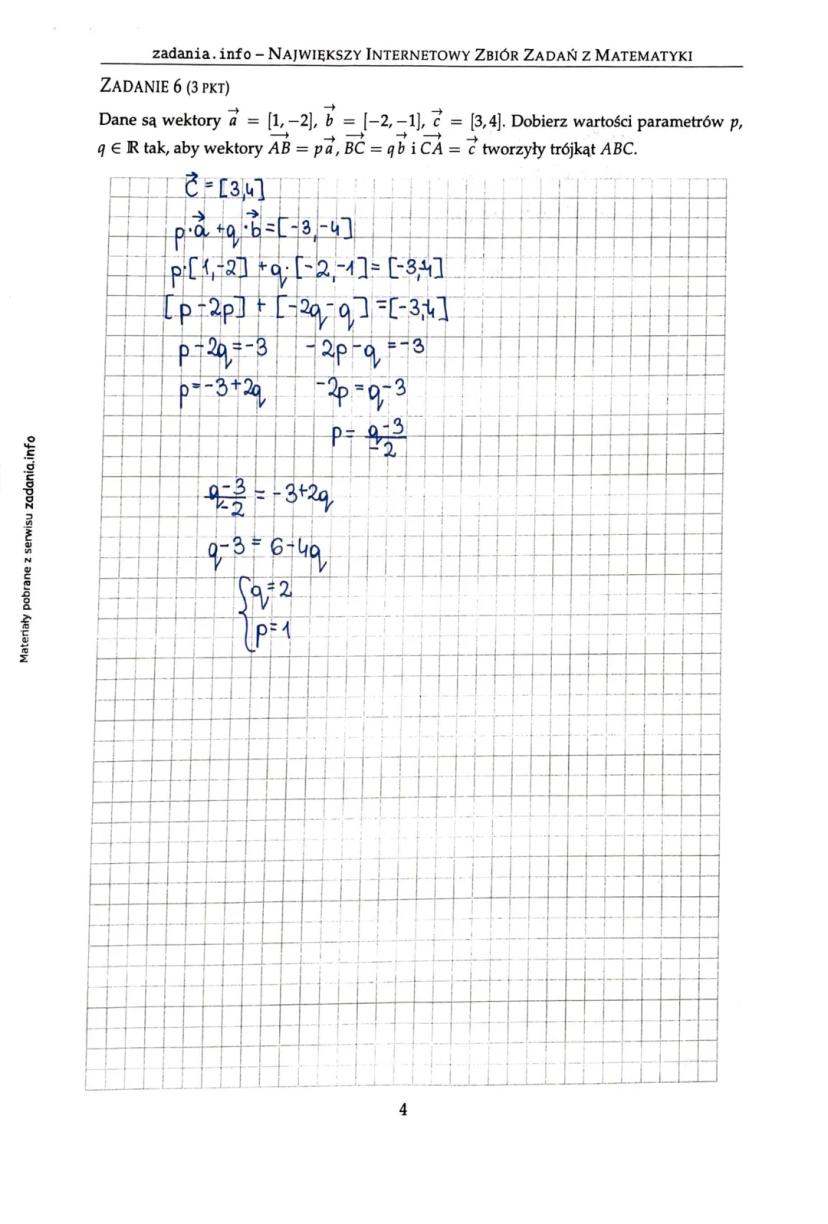 zadania.info – NAJWIĘKSZY INTERNETOWY ZBIÓR ZADAŃ Z MATEMATYKI
ZADANIE 6 (3 PKT)
Dane są wektory a⃗ = [1, −2], b⃗ = [−2, −1], c⃗ = [3, 4]. Dobierz wartości parametrów p,
q ∈ ℝ tak, aby wektory AB⃗ = pa⃗, BC⃗ = qb⃗ i CA⃗ = c⃗ tworzyły trójkąt ABC.
c⃗ = [3,4]
p·a⃗ + q·b⃗ = [-3,-4]
p·[1,-2] + q·[-2,-1] = [-3,-4]
[p-2p] + [-2q-q] = [-3,-4]
p-2q=-3 -2p-q=-3
p=-3+2q -2p=q-3
p= q-3/-2
q-3/-2 = -3+2q
q-3 = 6-4q
{q=2
p=1
4
Materiały pobrane z serwisu zadania.info